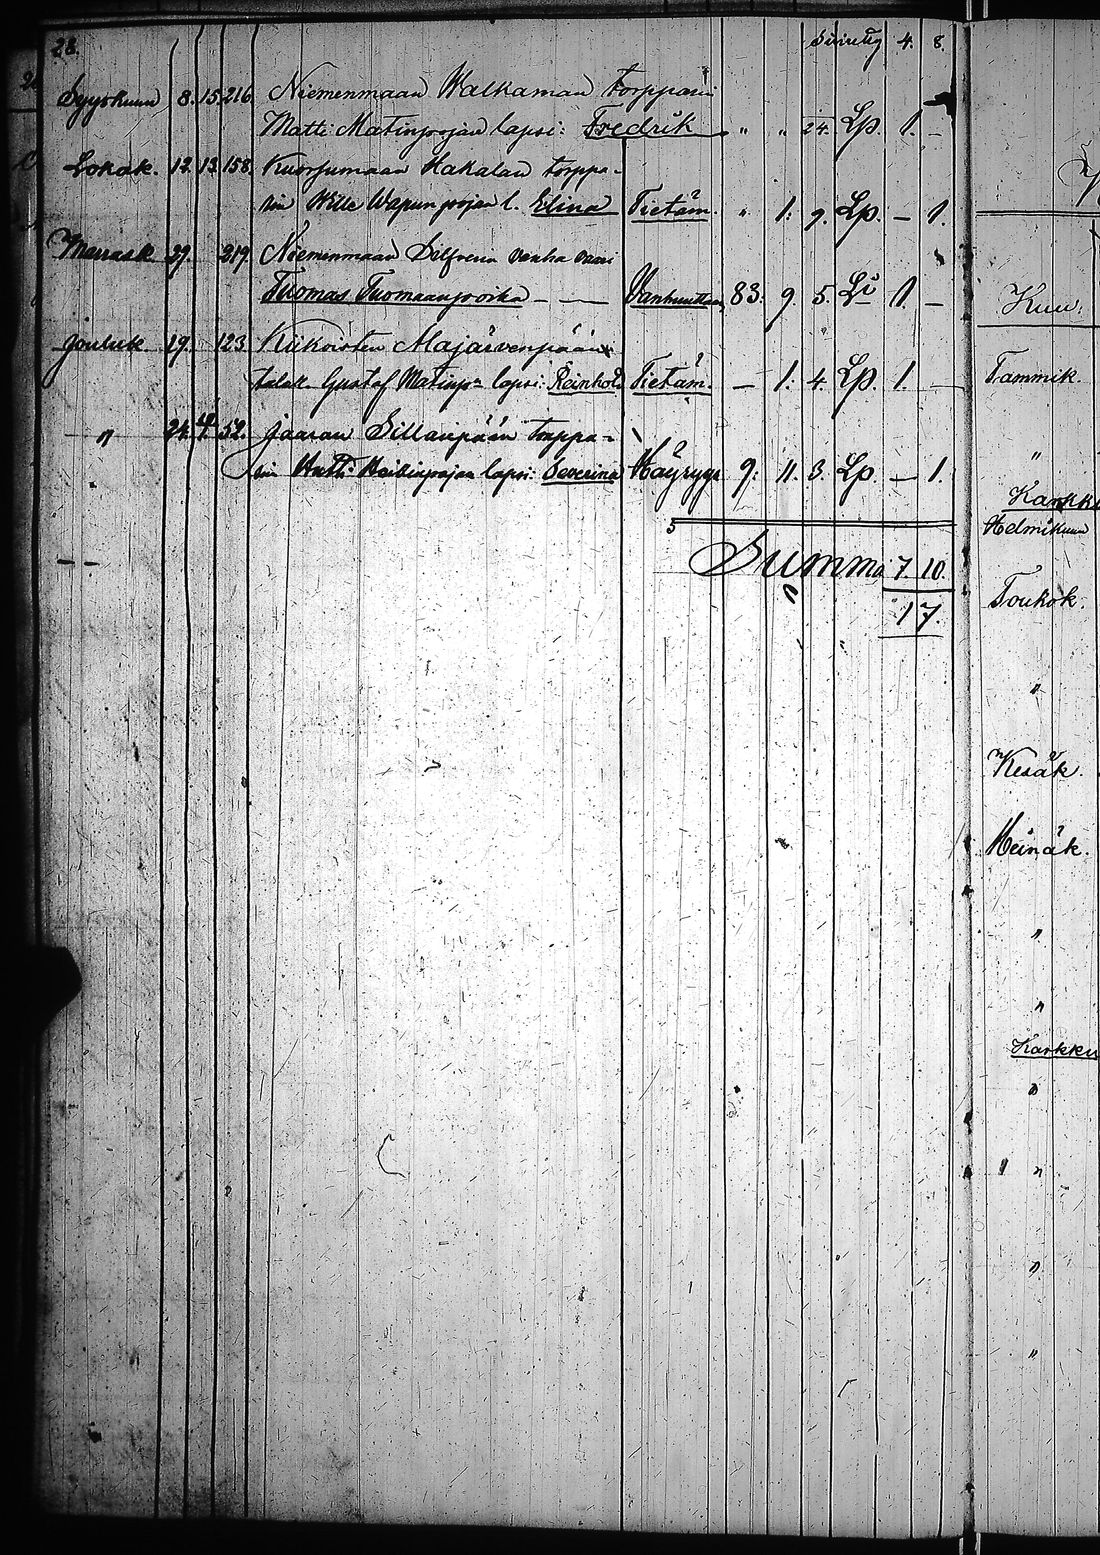 28.
Siirretty 4. 8.
Syyskuun 8. 15. 216. Niemenmaan Walkaman torpparin
Matti Matinpojan lapsi: Fredrik " " 24. Lp. 1. –
Lokak. 12. 13. 158. Kuorsumaan Hakalan torppa-
rin Wille Wapunpojan l. Elina Tietäm. " 1. 9. Lp. – 1.
Marrask. 29. 219. Niemenmaan Silfvena vanha vaari
Tuomas Tuomaanpoika – — Vanhuuttaan 83. 9. 5. Li 1. –
Jouluk. 19. 123. Kiikoisten Majärvenpään
talak. Gustaf Matinp:n lapsi: Reinhold Tietäm. – 1. 4. Lp. 1. –
" 24. 4. 52. Jaaran Sillanpään torppa-
rin Antti Heikinpojan lapsi: Severina 9. 11. 3. Lp. – 1.
5
Summa 7. 10.
17.
Kuu:
Tammik.
"
Karkku
Helmikuun
Toukok.
"
Kesäk.
Heinäk.
"
"
Karkku
"
"
"
"